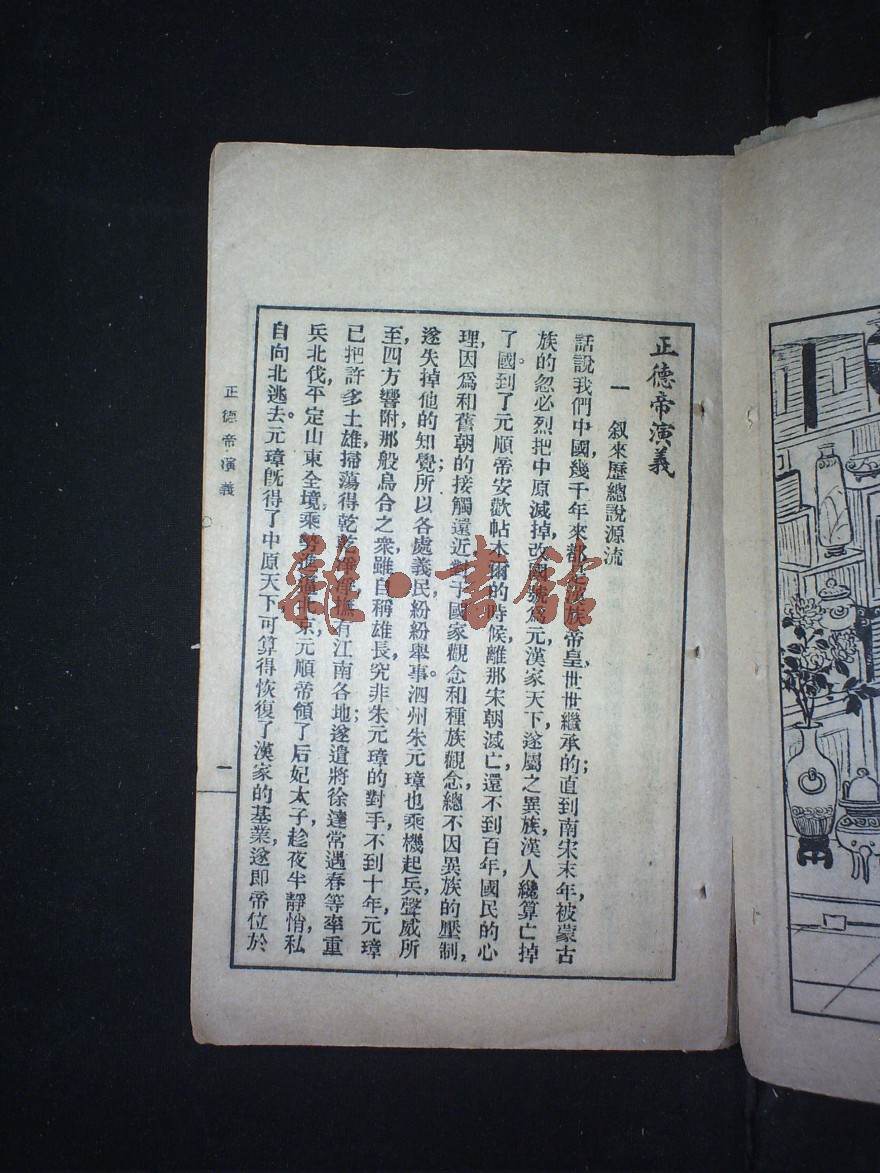 正德帝演義
一　叙來歷總說源流
話說我們中國，幾千年來，都是漢族帝皇，世世繼承的；直到南宋末年，被蒙古
族的忽必烈把中原滅掉，改國號爲元，漢家天下，遂屬之異族，漢人纔算亡掉
了國。到了元順帝安歡帖木爾的時候，離那宋朝滅亡，還不到百年，國民的心
理，因爲和舊朝的接觸還近，對于國家觀念和種族觀念，總不因異族的壓制，
遂失掉他的知覺；所以各處義民，紛紛舉事。泗州朱元璋也乘機起兵，聲威所
至，四方響附，那般烏合之衆，雖自稱雄長，究非朱元璋的對手，不到十年，元璋
已把許多土雄，掃蕩得乾乾淨淨，撫有江南各地；遂遣將徐達常遇春等，率重
兵北伐，平定山東全境，乘勢進逼北京，元順帝領了后妃太子，趁夜半靜悄，私
自向北逃去。元璋旣得了中原天下，可算得恢復了漢家的基業，遂即帝位於
正德帝演義
一
雜·書館